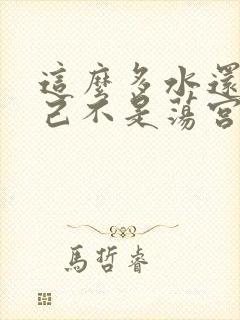 這麼多水還
己不是蕩宮
馬哲睿